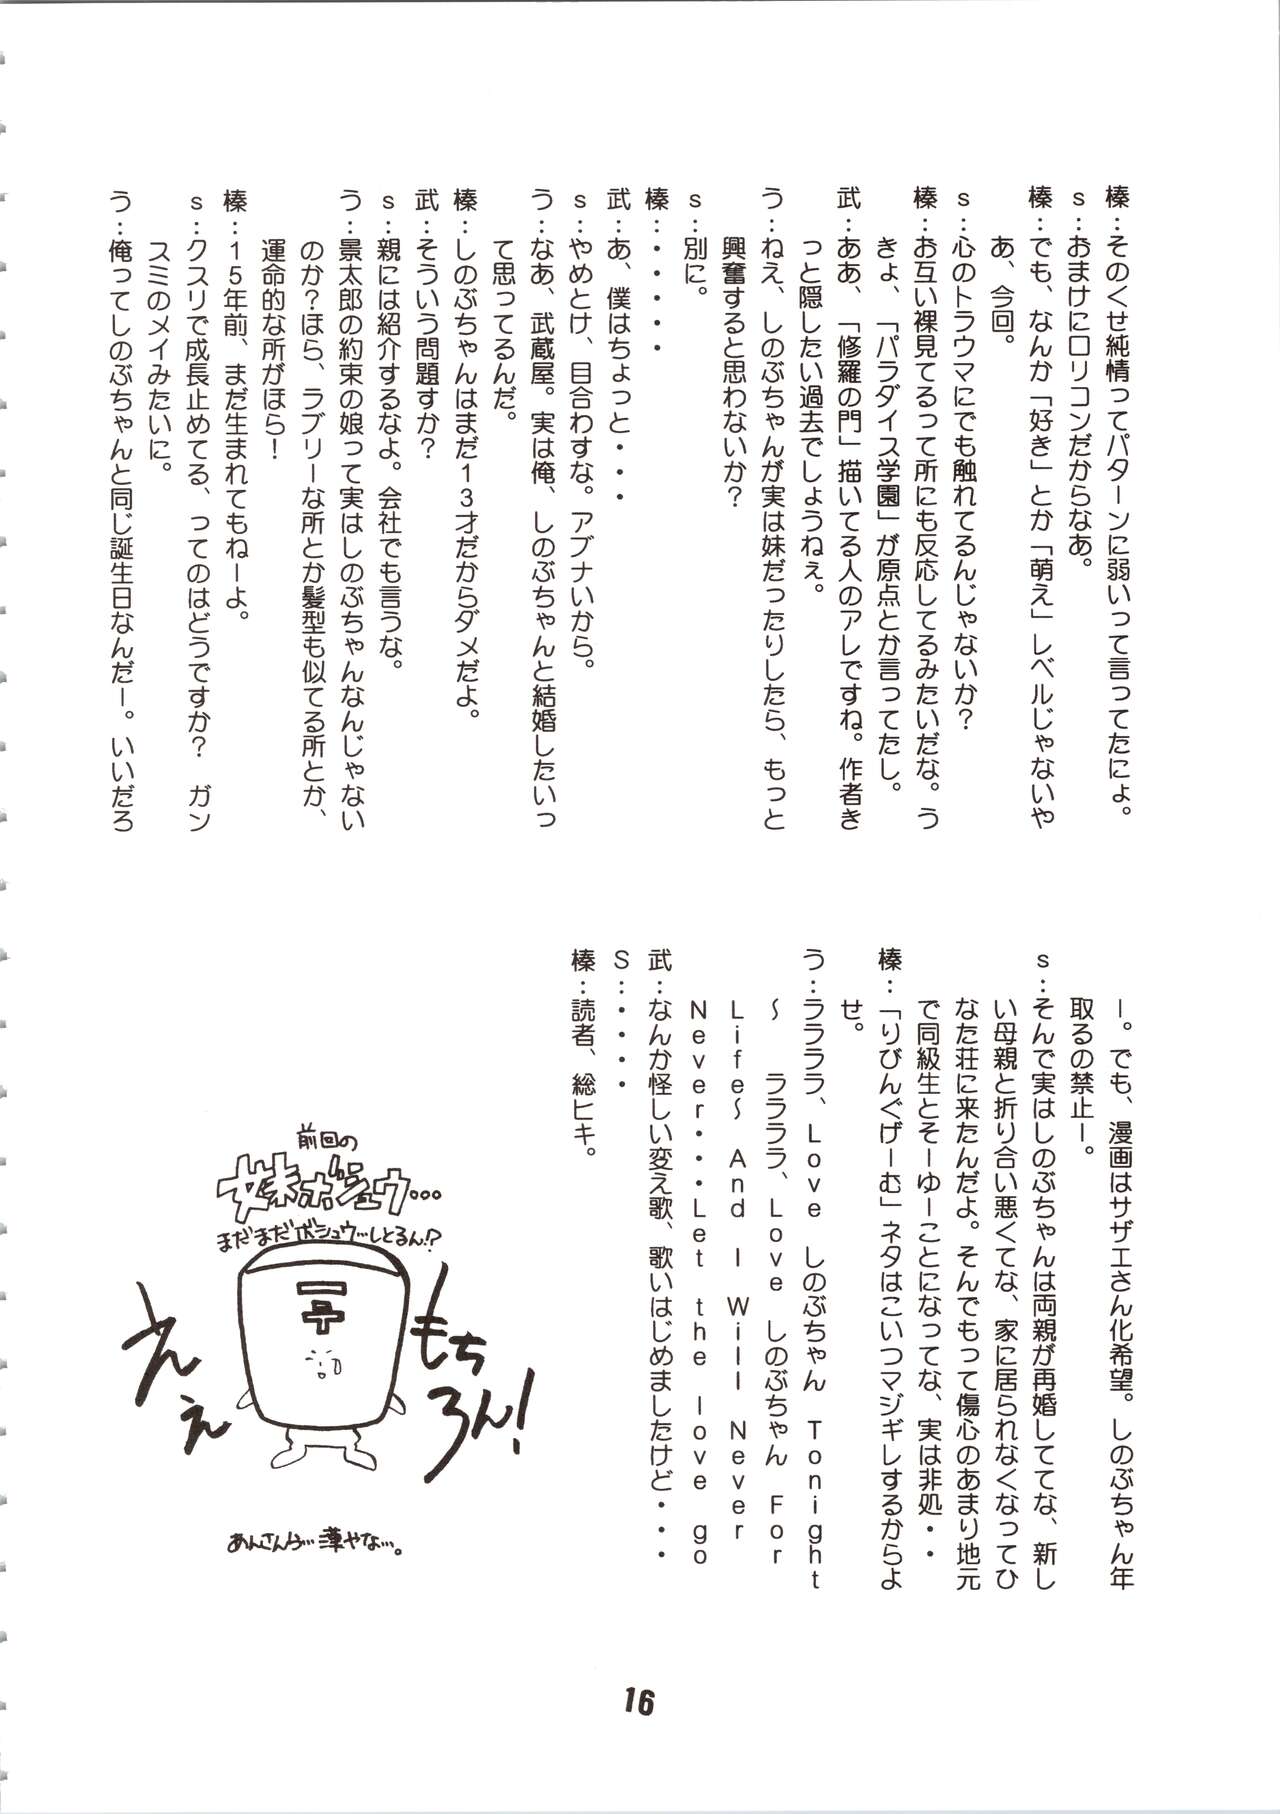 榛：そのくせ純情ってパターンに弱いって言ってたにょ。
s：おまけにロリコンだからなあ。
榛：でも、なんか「好き」とか「萌え」レベルじゃないや
あ、今回。
s：心のトラウマにでも触れてるんじゃないか？
榛：お互い裸見てるって所にも反応してるみたいだな。う
きょ、「パラダイス学園」が原点とか言ってたし。
武：ああ、「修羅の門」描いてる人のアレですね。作者き
っと隠したい過去でしょうねぇ。
う：ねえ、しのぶちゃんが実は妹だったりしたら、もっと
興奮すると思わないか？
s：別に。
榛：・・・・・
武：あ、僕はちょっと・・・
s：やめとけ、目合わすな。アブナいから。
う：なあ、武蔵屋。実は俺、しのぶちゃんと結婚したいっ
て思ってるんだ。
榛：しのぶちゃんはまだ13才だからダメだよ。
武：そういう問題すか？
s：親には紹介するなよ。会社でも言うな。
う：景太郎の約束の娘って実はしのぶちゃんなんじゃない
のか？ほら、ラブリーな所とか髪型も似てる所とか、
運命的な所がほら！
榛：15年前、まだ生まれてもねーよ。
s：クスリで成長止めてる、ってのはどうですか？　ガン
スミのメイみたいに。
う：俺ってしのぶちゃんと同じ誕生日なんだー。いいだろ
ー。でも、漫画はサザエさん化希望。しのぶちゃん年
取るの禁止ー。
s：そんで実はしのぶちゃんは両親が再婚しててな、新し
い母親と折り合い悪くてな、家に居られなくなってひ
なた荘に来たんだよ。そんでもって傷心のあまり地元
で同級生とそーゆーことになってな、実は非処・・
榛：「りびんぐげーむ」ネタはこいつマジギレするからよ
せ。
う：ララララ、Love しのぶちゃん Tonight
～　ラララララ、Love しのぶちゃん For
Life～ And I Will Never
Never・・・Let the love go
武：なんか怪しい変え歌、歌いはじめましたけど・・・
S：・・・・
榛：読者、総ヒキ。
前回の
妹ボシュウ…
まだまだボシュウ…しとるん!?
もち
ろん!
ええ
あんさんら…薄やな…。
16